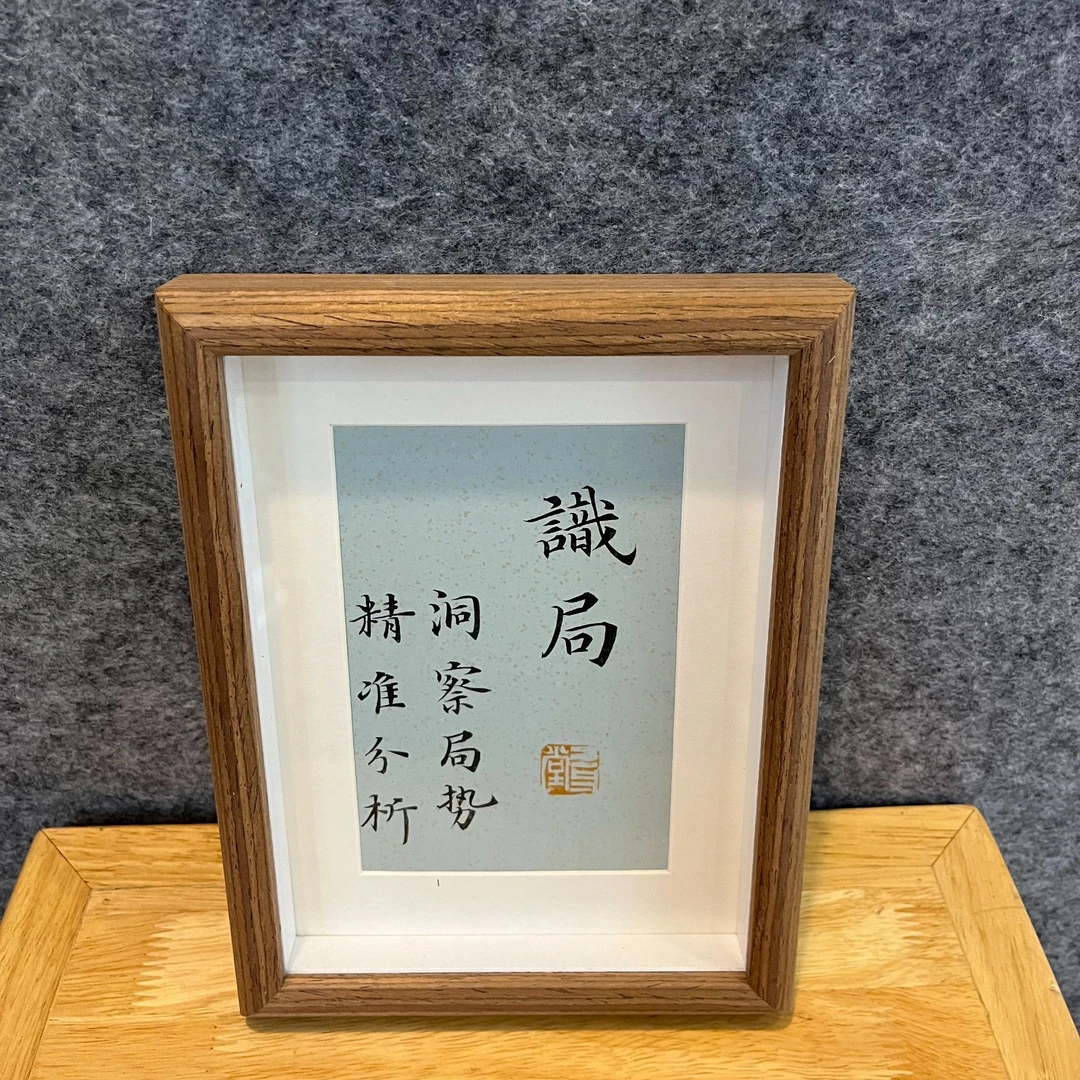 識局
洞察局势
精准分析